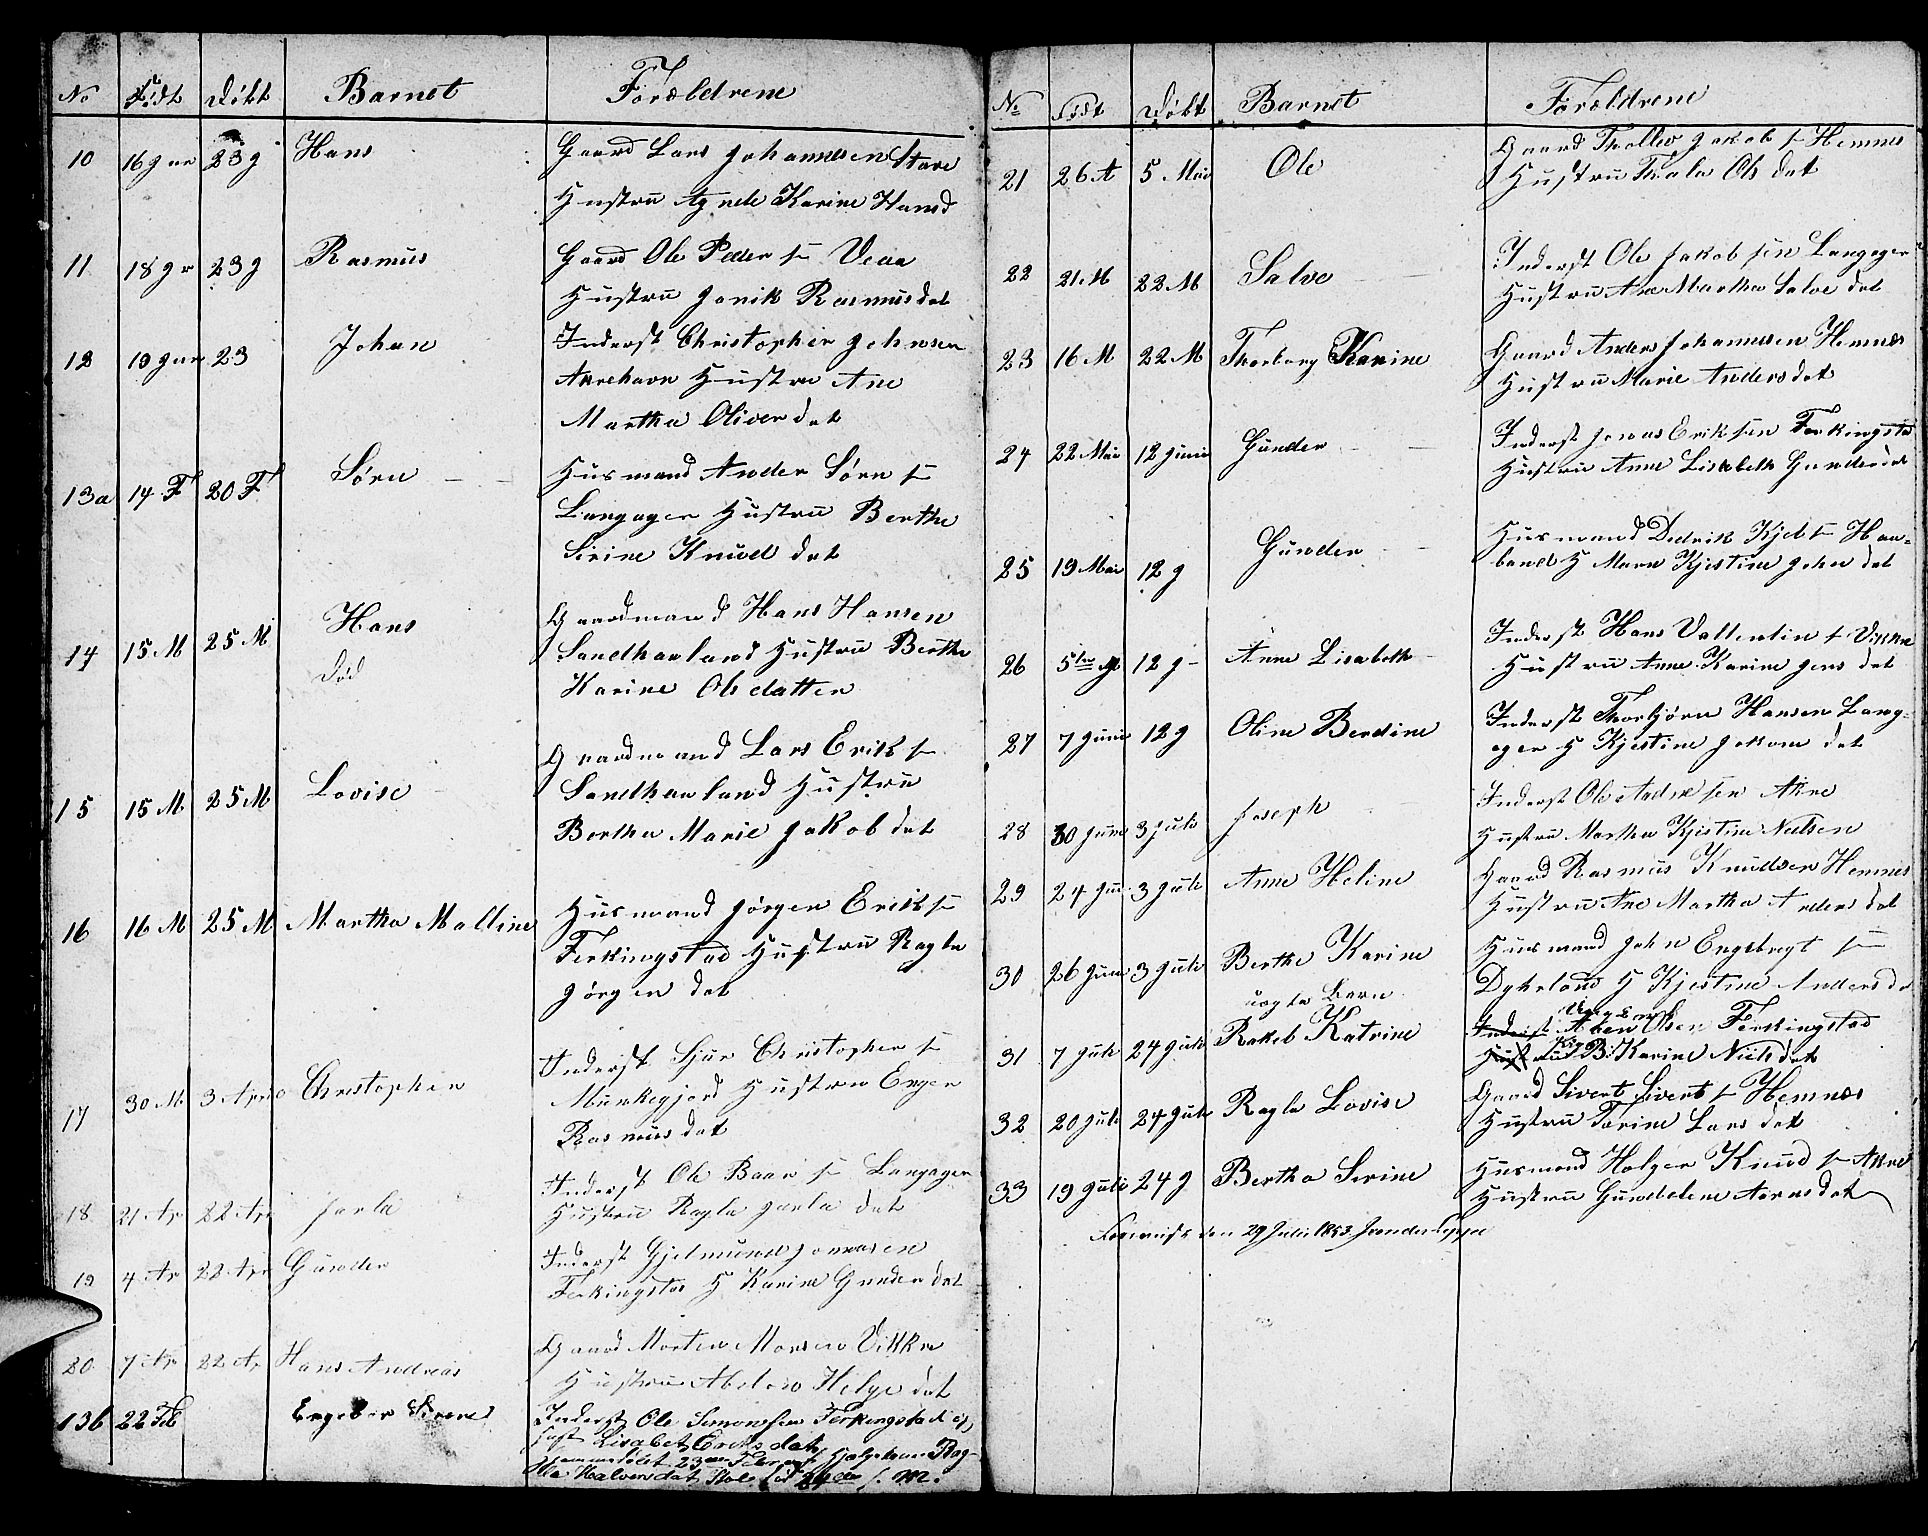 No Født Døbt Barnet Forældrene
10 16 Jan 23 J Hans Gaard Lars Johannesen Stave
Hustru Agnete Karine Hansd
11 18 Jr 23 J Rasmus Gaard Ole Peder sen Veaa
Hustru Janik Rasmusdat
12 19 Jan 23 Johan Inderst Christopher Johnsen
Aarehavn Hustru Ane
Martha Oliverdat
13a 14 F 20 F Sørn Husmand Ander Sørn sen
Langager Hustru Berthe
Sirine Knud dat
14 15 M 25 M Hans Gaardmand Hans Hansen
Død Sandhaaland Hustru Berthe
Karine Olsdatter
15 15 M 25 M Lovise Gaardmand Lars Erik sen
Sandhaaland Hustru
Bertha Marie Jakob dat
16 16 M 25 M Martha Malline Husmand Jørgen Erik sen
Ferkingstad Hustru Ragla
Jørgen dat
17 30 M 3 April Christopher Inderst Sjur Christopher sen
Munkejord Hustru Enger
Rasmusdat
18 21 Ap 22 Apr Jarla Inderst Ole Baar sen Langager
Hustru Ragla Jarla dat
19 4 Ap 22 Apr Gunder Inderst Gjelmund Jonnasen
Ferkingstad H Karine Gunder dat
20 7 Ap 22 Ap Hans Andreas Gaard Morten Monsen Vikkre
Hustru Abelow Helge dat
13b 22 Feb Engeber Sirene Inderst Ole Simonsen Ferkingstad og
Hust Lisabet Erits dat,
hjemmedøbt 23 Februar Hjælpekone Rag-
la Halversdat Stole 24de s. M.
No Født Døbt Barnet Forældrene
21 26 A 5 Mai Ole Gaard Thollev Jakob sen Hemnes
Hustru Thala Ols dat
22 21 M 22 M Salve Inderst Ole Jakob sen Langager
Hustru Ane Martha Salve dat
23 16 M 22 M Thorborg Karine Gaard Anders Johannesen Hemnes
Hustru Marie Andersdat
24 22 Mai 12 Juni Gunder Inderst Jonas Eriksen Ferkingstad
Hustru Anne Lisabeth Gunderdat
25 19 Mai 12 J Gunder Husmand Dedrik Kjel sen Haa-
land H Maren Kjestine John dat
26 5te J 12 J Anne Lisabeth Inderst Hans Vallentin s Vikre
Hustru Anne Karine Jens dat
27 7 Juni 12 J Oline Berdine Inderst Thorbjørn Hansen Lang-
ager H Kjestine Jakom dat
28 30 Juni 3 Juli Joseph Inderst Ole Andre sen Akre
Hustru Martha Kjestine Nielsen
29 24 Jun 3 Juli Anne Heline Gaard Rasmus Knudsen Hemnes
Hustru Ane Martha Anders dat
30 26 Juni 3 Juli Berthe Karine Husmand John Engebregt sen
Dykeland H Kjestine Anders da
uægte Barn Ungkarl
31 7 Juli 24 Juli Rakeb Katrine Inderst Aben Olsen Ferkingstad
Hustru Pige B: Karine Niels dat
32 20 Juli 24 Juli Ragla Lovise Gaard Sivert Sivert sen Hemnes
Hustru Torine Lars dat
33 19 Juli 24 J Bertha Serine Husmand Holger Knud sen Akre
Hustru Gundelene Aarnedat
Foreviist den 29 Juli 1853